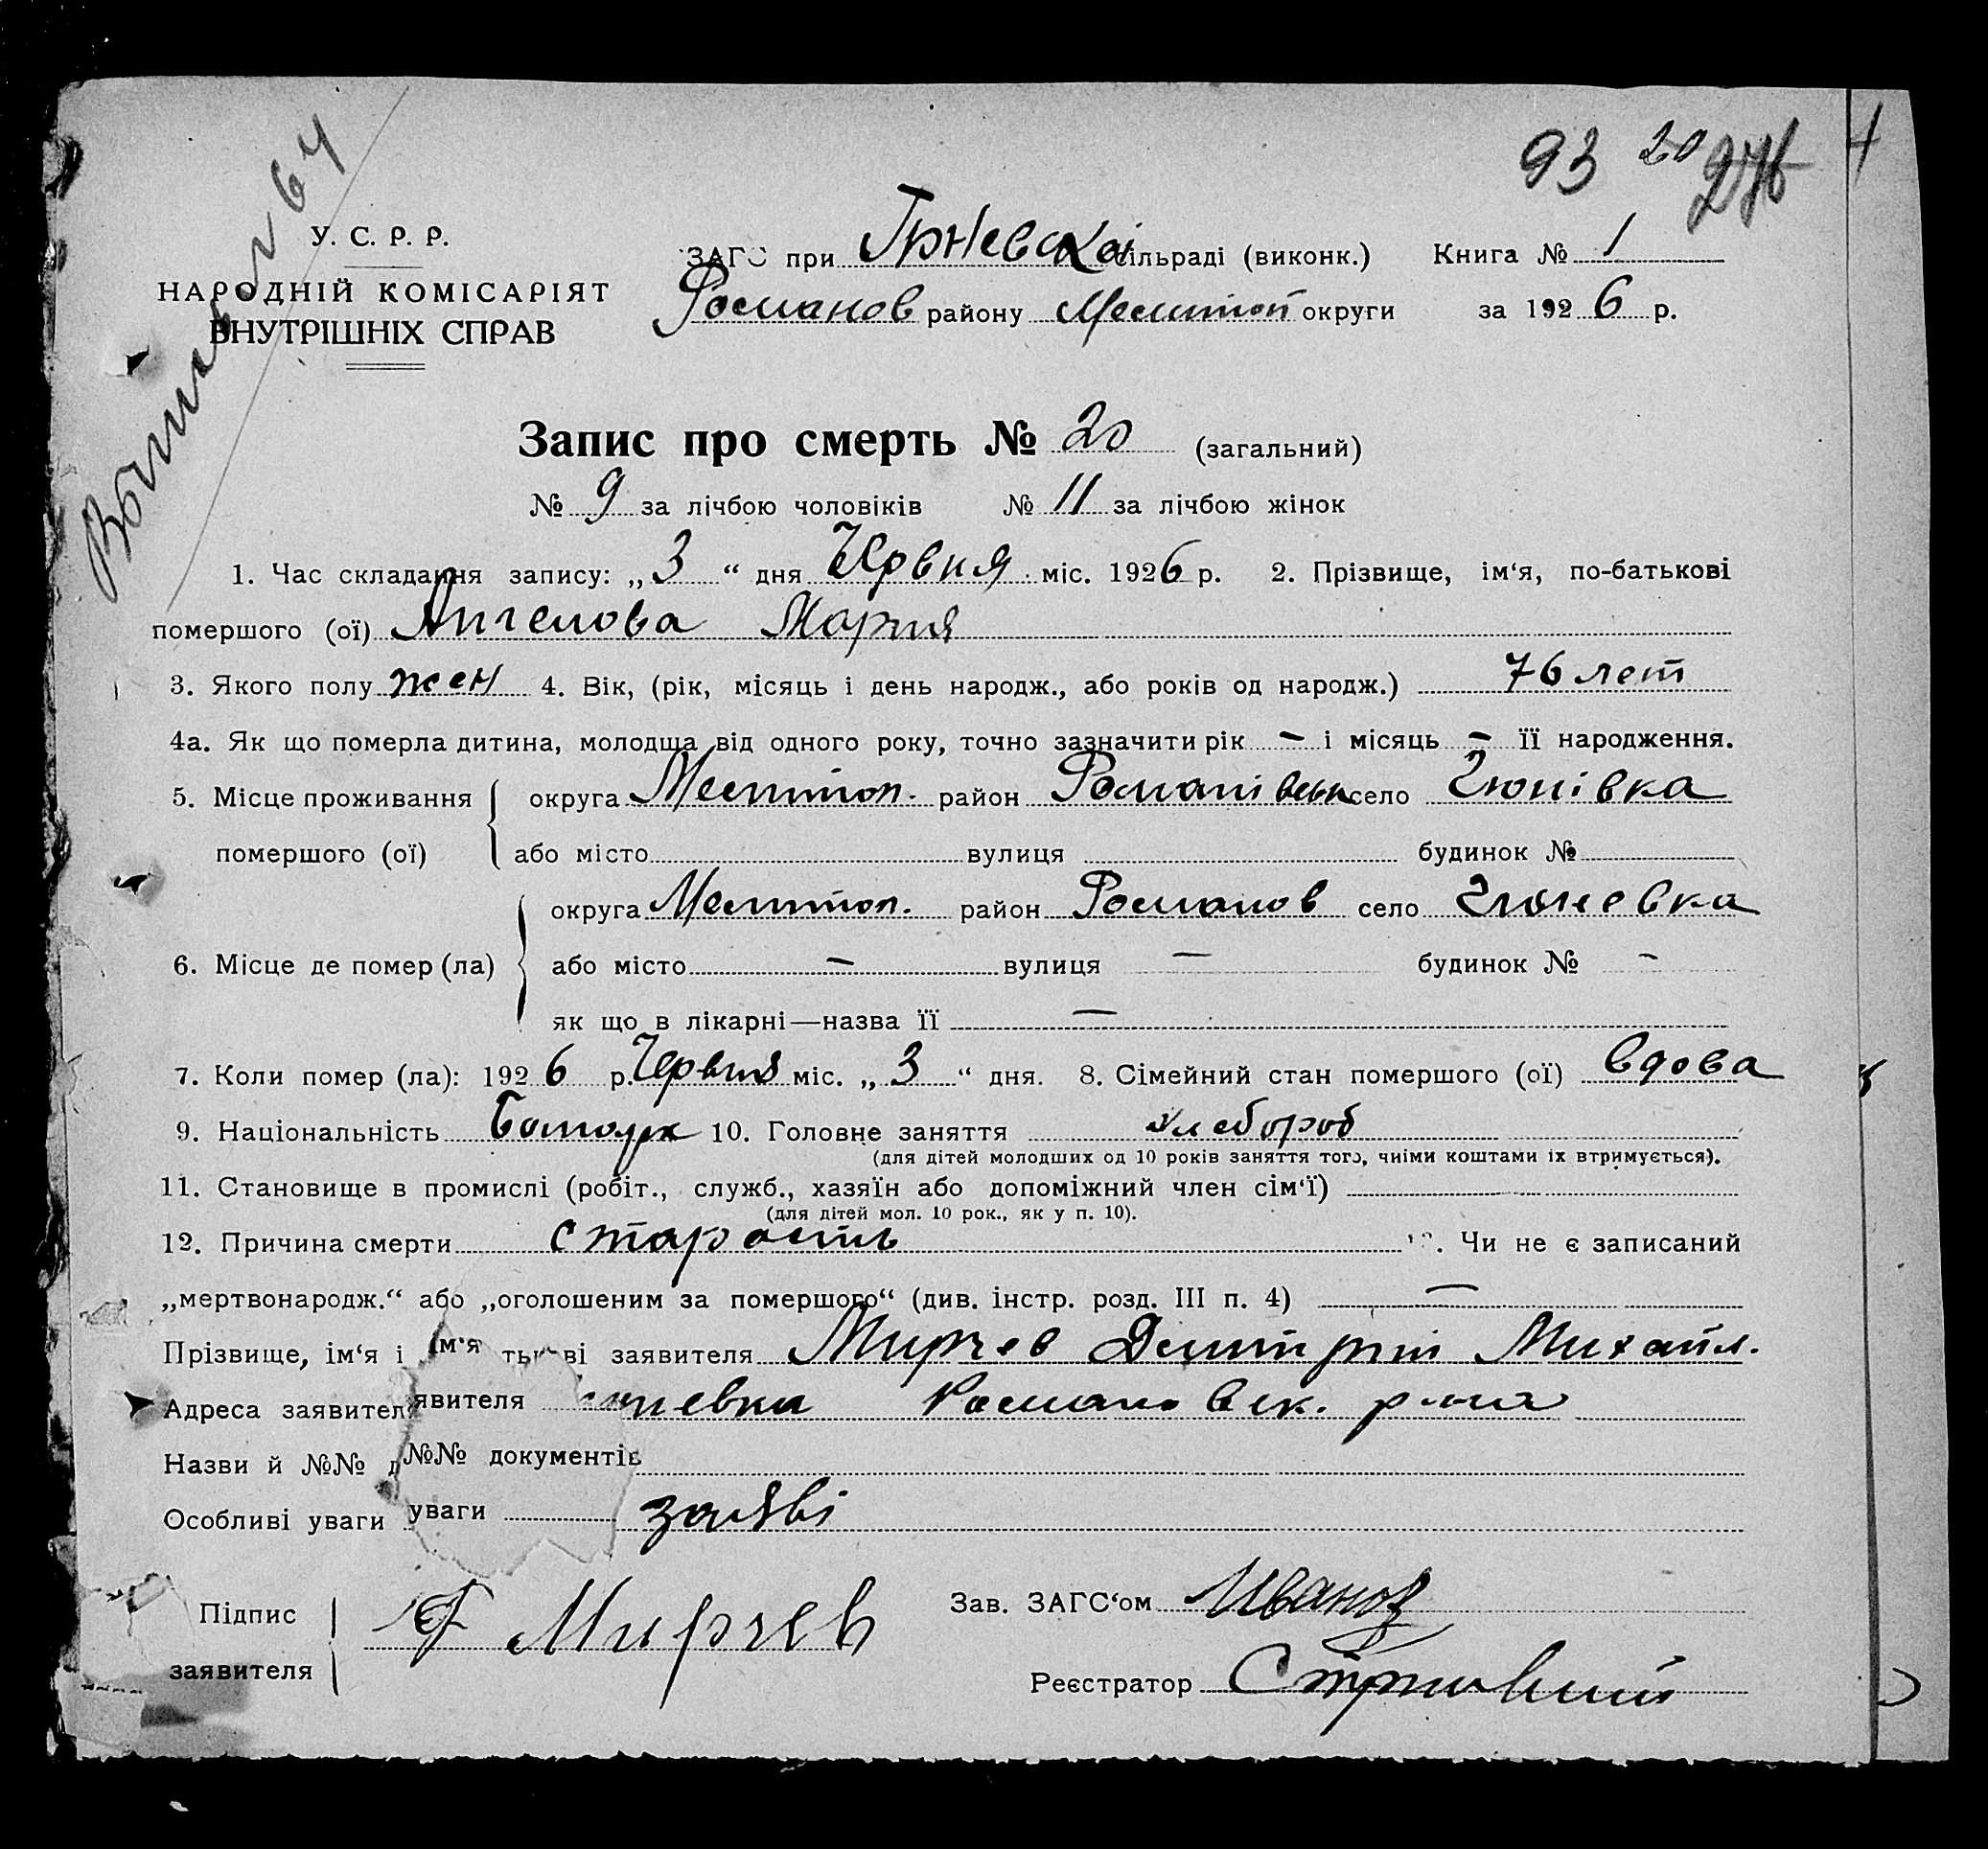 93 20 276
У. С. Р. Р.
НАРОДНІЙ КОМІСАРІЯТ
ВНУТРІШНІХ СПРАВ
ЗАГС при Гюневскои сільраді (виконк.) Книга № 1
Романов району Мелитоп округи за 1926 р.
Запис про смерть № 20 (загальний)
№ 9 за лічбою чоловіків № 11 за лічбою жінок
1. Час складання запису: „3“ дня Червня міс. 1926 р. 2. Прізвище, ім‘я, по-батькові
помершого (ої) Ангелова Мария
3. Якого полу жен 4. Вік, (рік, місяць і день народж., або років од народж.) 76 лет
4а. Як що померла дитина, молодща від одного року, точно зазначити рік – і місяць – її народження.
5. Місце проживання помершого (ої) округа Мелитоп. район Романівськ село Гюнівка
або місто вулиця будинок №
6. Місце де помер (ла) округа Мелитоп. район Романов село Гюневка
або місто – вулиця – будинок № –
як що в лікарні—назва її —
7. Коли помер (ла): 1926 р. Червня міс. „3“ дня. 8. Сімейний стан помершого (ої) вдова
9. Національність Болгарк 10. Головне заняття хлебороб
(для дітей молодших од 10 років заняття того, чиїми коштами їх втримується).
11. Становище в промислі (робіт., служб., хазяїн або допоміжний член сім‘ї)
(для дітей мол. 10 рок., як у п. 10).
12. Причина смерти старость 13. Чи не є записаний
„мертвонародж.“ або „оголошеним за помершого“ (див. інстр. розд. III п. 4) —
Прізвище, ім‘я і ім‘я тькові заявителя Мирчев Дмитрий Михайл.
Адреса заявител явителя невка Романовск. р-на
Назви й №№ д №№ документів
Особливі уваги уваги заяві
Підпис заявителя Мирчев
Зав. ЗАГС‘ом Иванов
Реєстратор